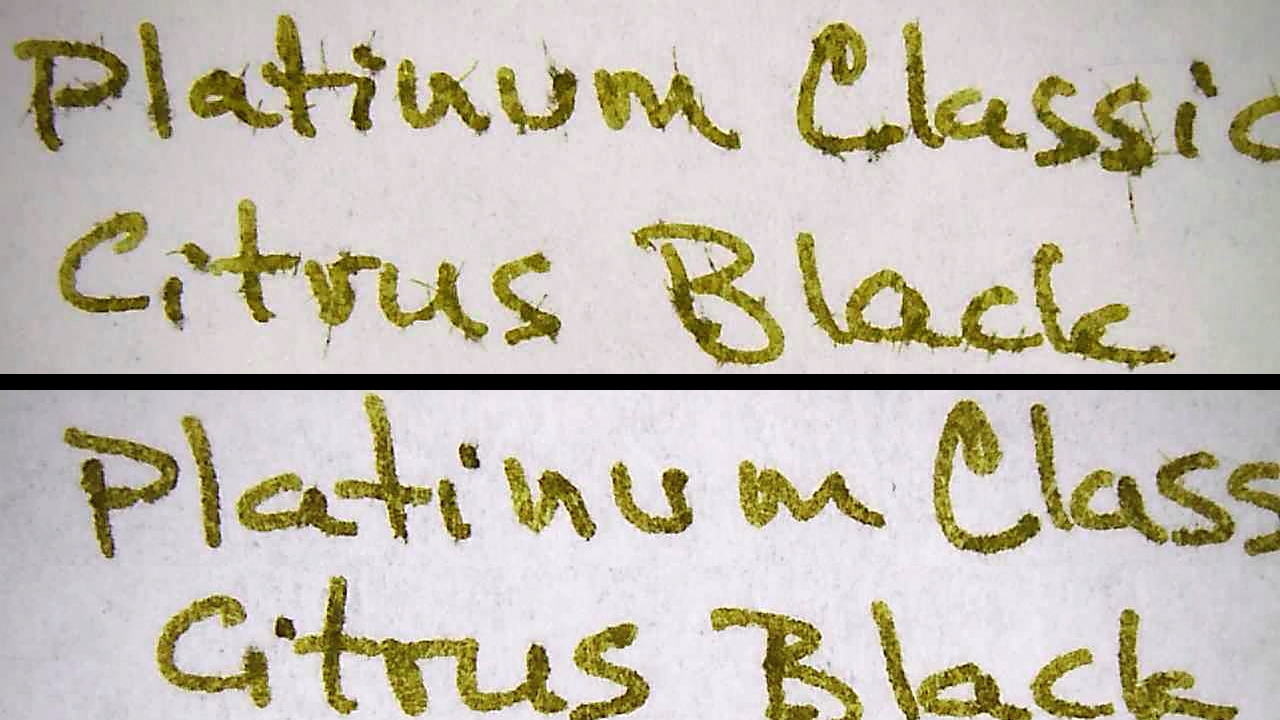 Platinum Classic
Citrus Black
Platinum Class
Citrus Black